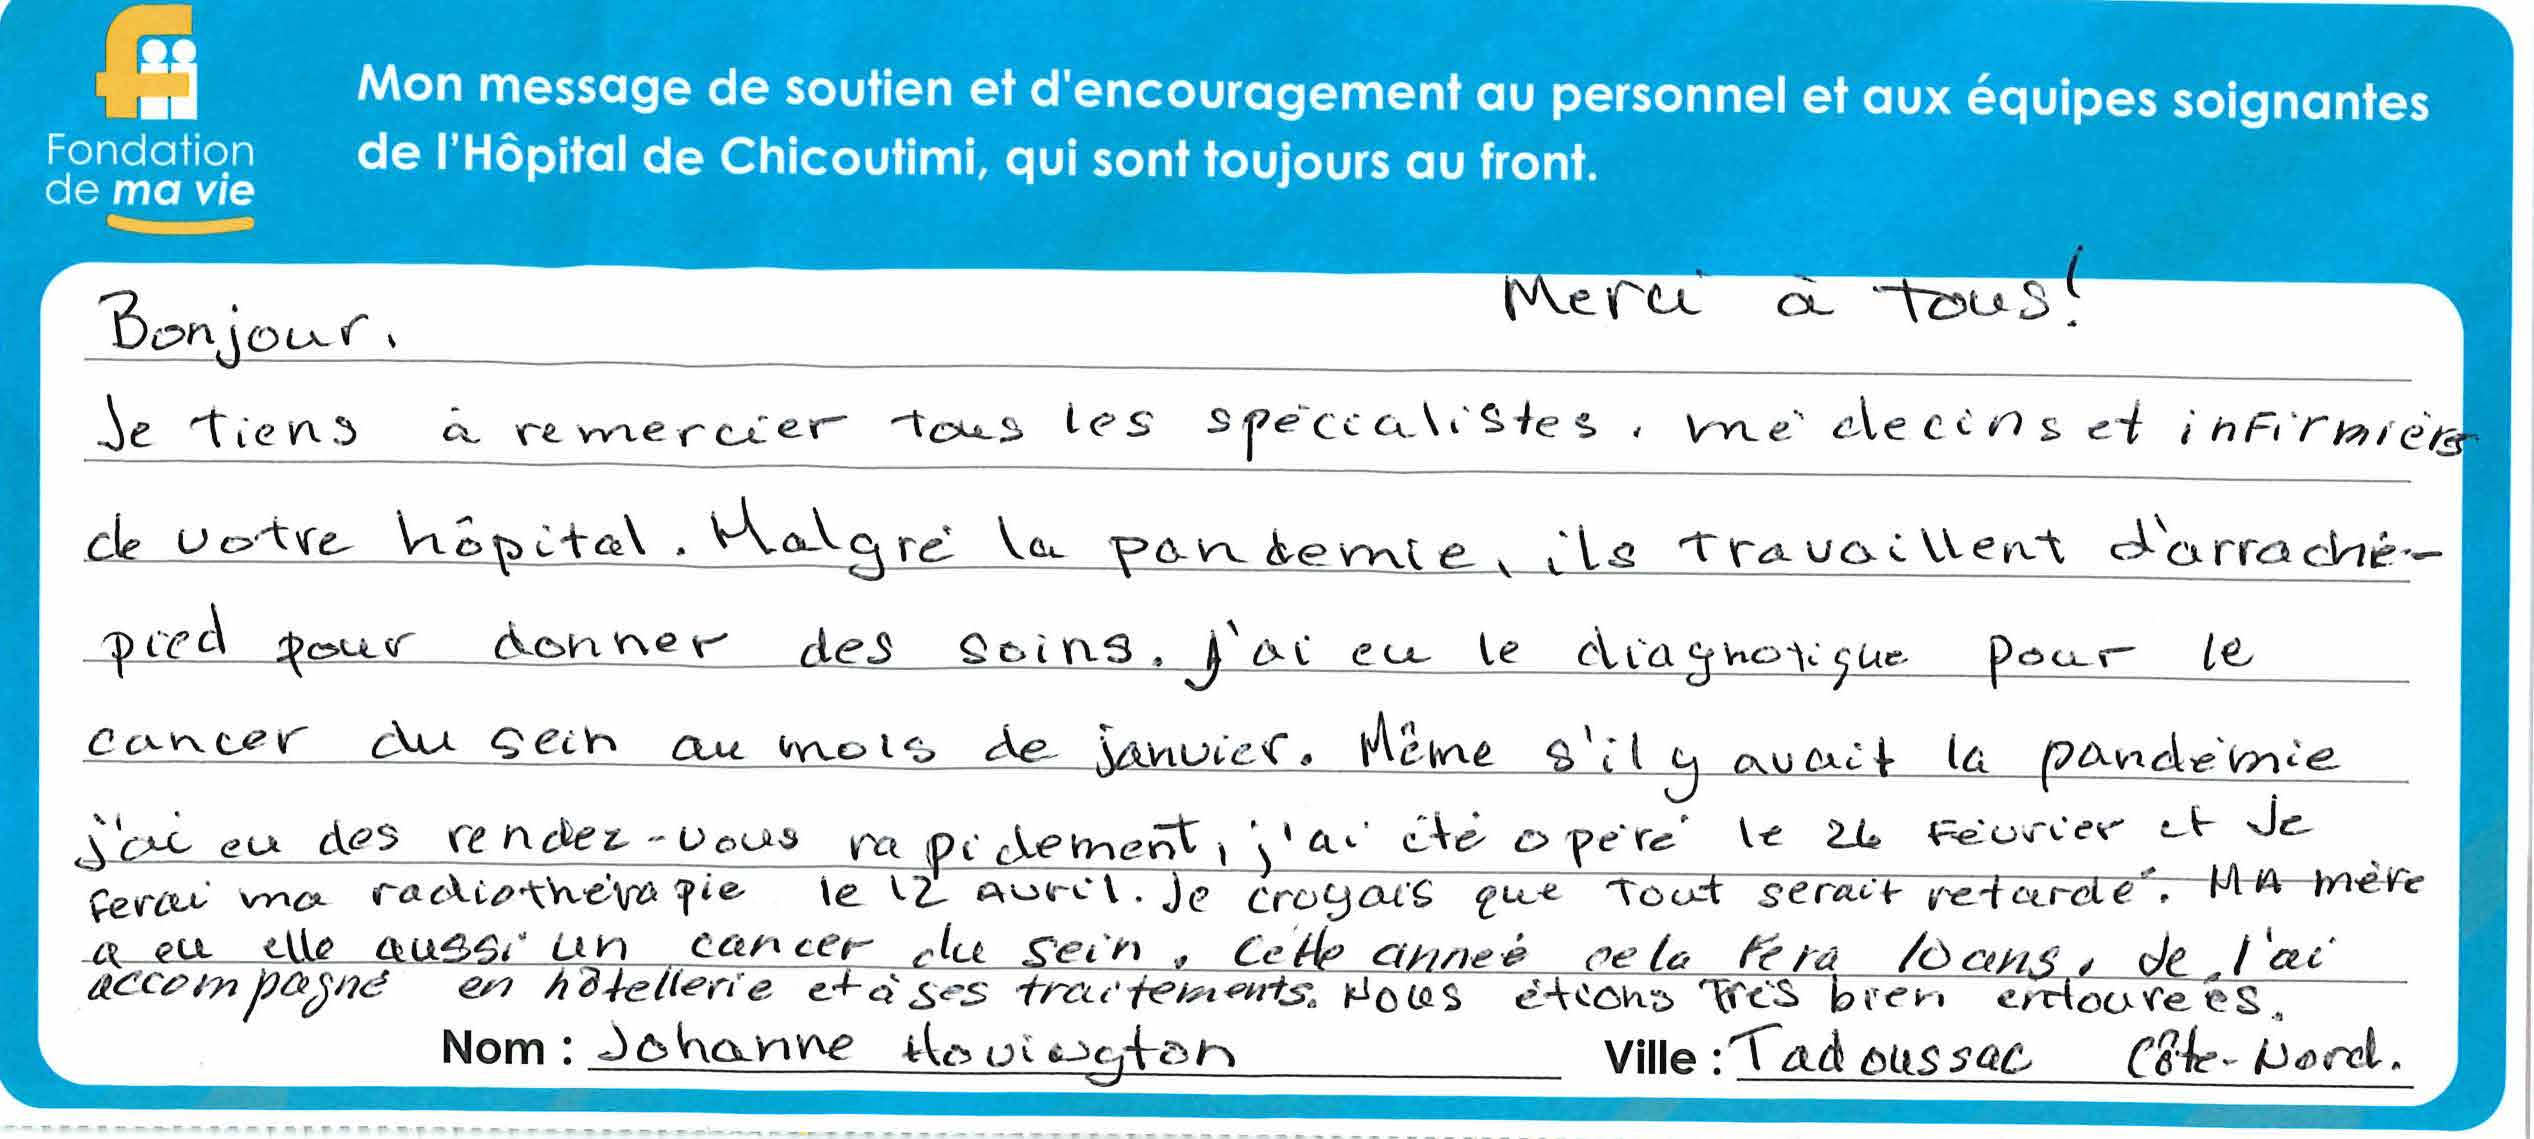 Fondation
de ma vie
Mon message de soutien et d'encouragement au personnel et aux équipes soignantes
de l'Hôpital de Chicoutimi, qui sont toujours au front.
Merci à tous!
Bonjour,
Je tiens à remercier tous les spécialistes, médecins et infirmièrs
de votre hôpital. Malgré la pandemie, ils travaillent d'arraché-
pied pour donner des soins. J'ai eu le diagnotique pour le
cancer du sein au mois de janvier. Même s'il y avait la pandémie
j'ai eu des rendez-vous rapidement, j'ai été opéré le 26 Février et Je
ferai ma radiothérapie le 12 Avril. Je croyais que tout serait retardé. MA mère
a eu elle aussi un cancer du sein. Cette année cela fera 10 ans, Je l'ai
accompagné en hôtellerie et à ses traitements. Nous étions Très bien entourées.
Nom : Johanne Hovington
Ville : Tadoussac Côte-Nord.